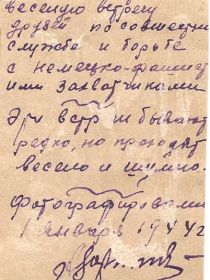 веселую встречу
друзей по совмест
службе и борьбе
с немецко-фашист
ими захватчиками
Эти встречи бывают
редко, но проходят
весело и шумно.
Фотографировали
1 января 1944 г